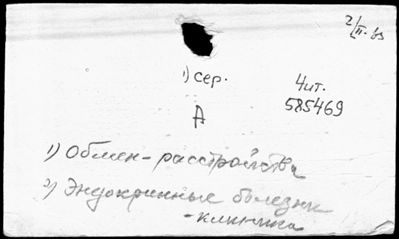 2/II-63
1) сер.
Чит.
585469
А
1) Обмен-расстройства
2) Эндокринные болезни
-клиника